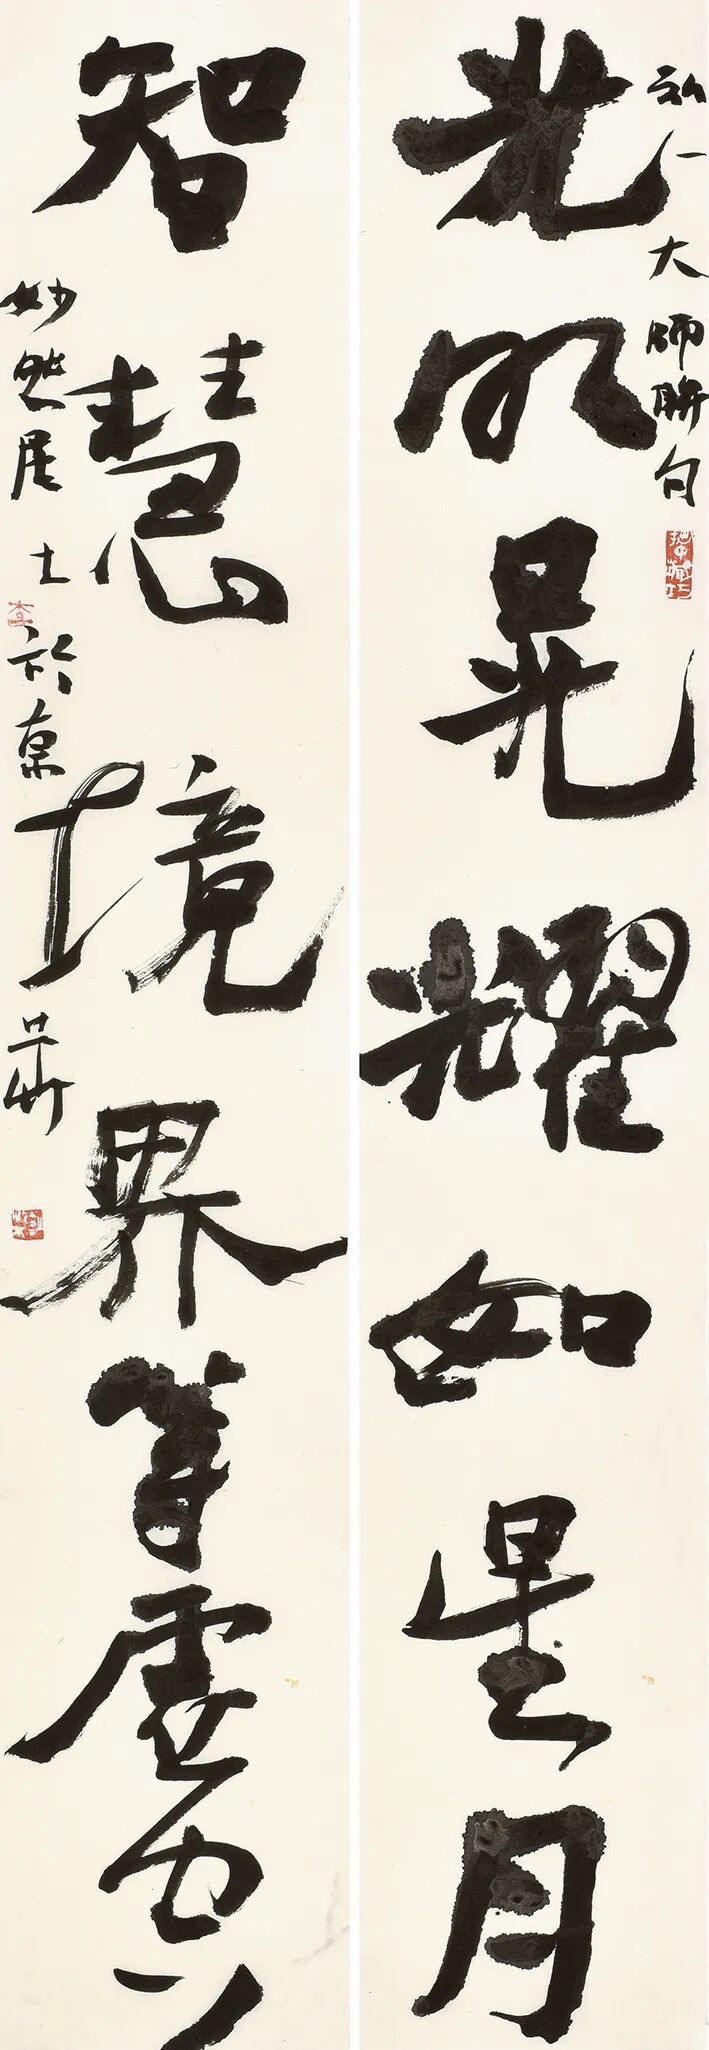 弘一大師聯句
光明晃耀如星月
智慧境界等虛空
妙然居士於京華